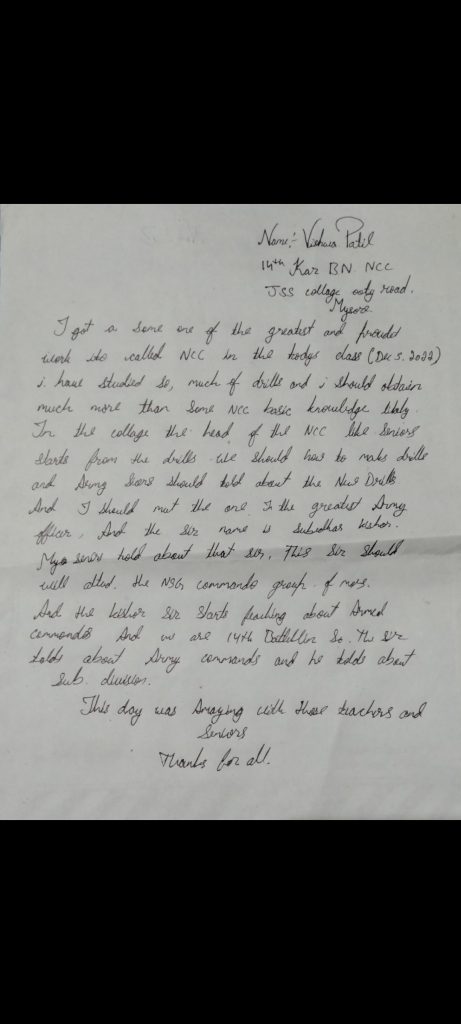 Name:- Vishwa Patil
14th Kar BN NCC
JSS collage ooty road.
Mysore.
I got a some one of the greatist and
work is called NCC in the todys class (Dec 5. 2022)
i have studied so, much of drills and i should obtain
much more than some NCC basic knowlidge
In the collage the head of the NCC like Seniors
starts from the drills we should how to maks drills
and Army should told about the New Drills
And I should mut the one In the greatist Army
officer, And the Sir name is Subidhar kishor.
senirs hold about that ser, This Sir should
will atted. the NSG commando group of
And the kishor Sir Starts about Armed
commondos And we are 14th So. The sir
tolds about Army commands and he tolds about
Sub. division.
This day was Amaying with those teachers and
Seniors
Thanks for all.